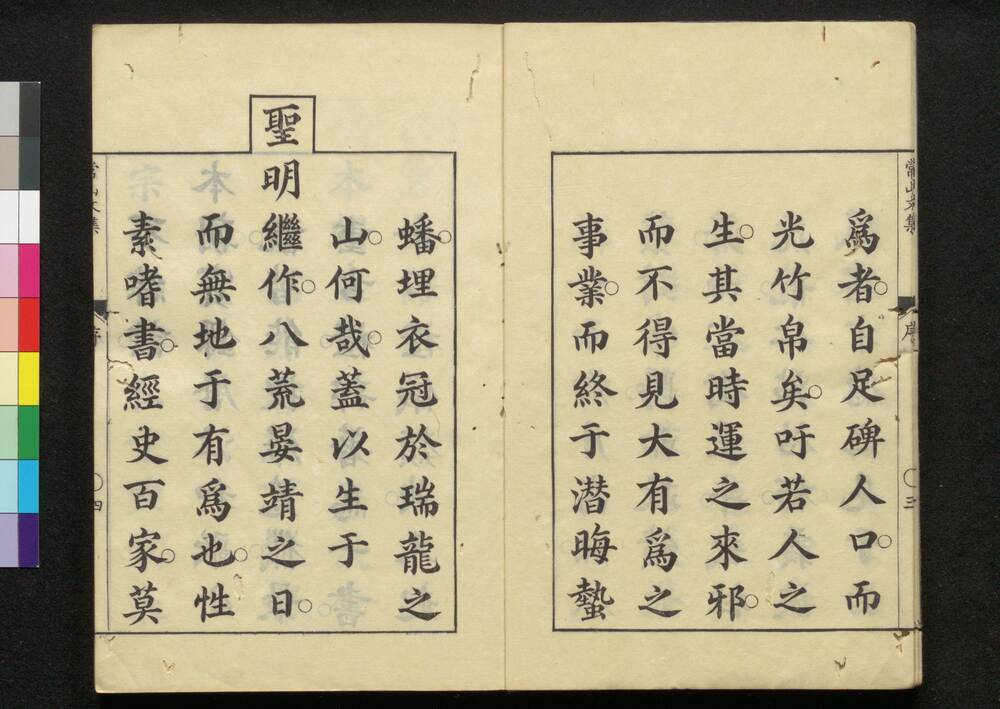 爲者。自足碑人口。而
光竹帛矣。吁若人之
生。其當時運之來邪。
而不得見大有爲之
事業。而終于潛晦蟄
蟠。埋衣冠於瑞龍之
山。何哉。蓋以生于
聖明繼作。八荒晏靖之日。
而無地于有爲也。性
素嗜書。經史百家。莫
常山文集
序
三
四